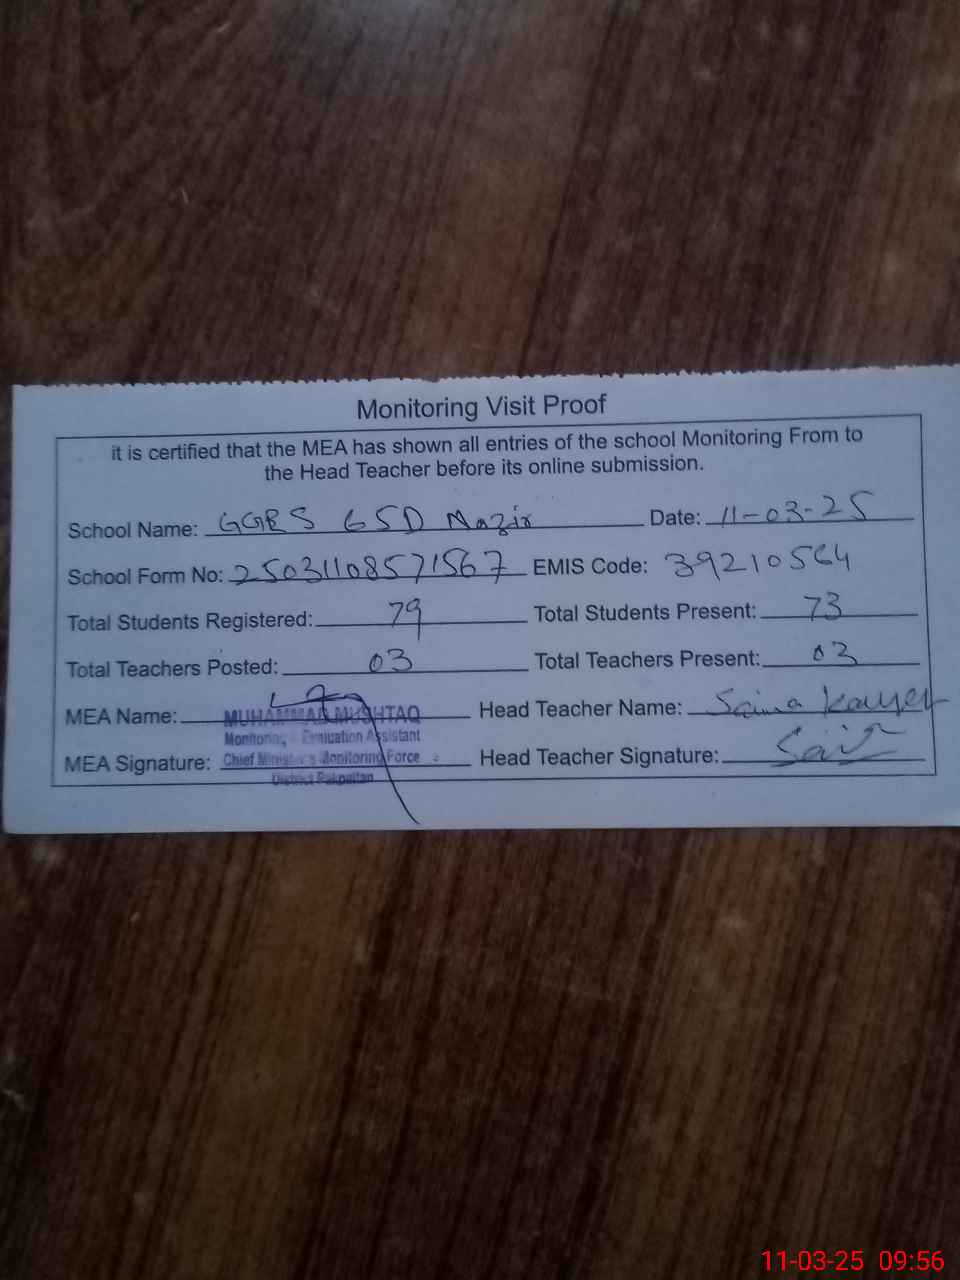 Monitoring Visit Proof
it is certified that the MEA has shown all entries of the school Monitoring From to
the Head Teacher before its online submission.
School Name: 65D Nazir Date: 11-03-25
School Form No: 25031108571567 EMIS Code: 39210564
Total Students Registered: 79 Total Students Present: 73
Total Teachers Posted: 03 Total Teachers Present: 03
MEA Name: MUHAMMAD MUSHTAQ Head Teacher Name: Saima
Monitoring Evaluation Assistant
MEA Signature: Chief Minister's Monitoring Force Head Teacher Signature:
District Pakpattan
11-03-25 09:56